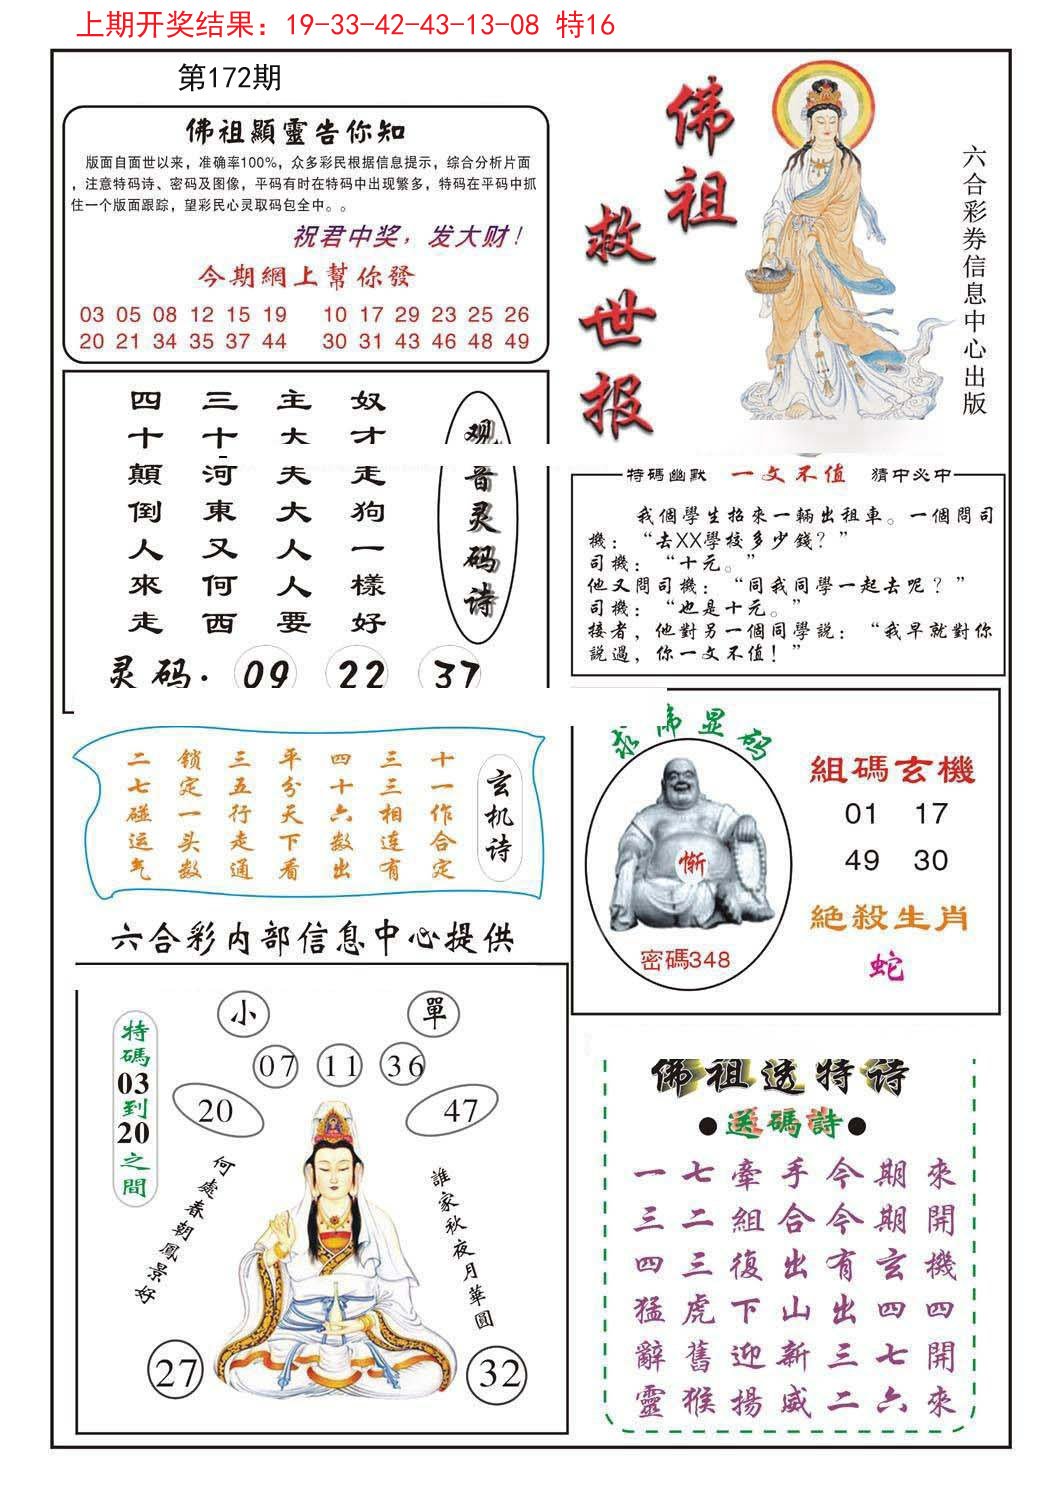 上期开奖结果：19-33-42-43-13-08 特16
第172期
佛祖顯靈告你知
版面自面世以来，准确率100%，众多彩民根据信息提示，综合分析片面
，注意特码诗、密码及图像，平码有时在特码中出现繁多，特码在平码中抓
住一个版面跟踪，望彩民心灵取码包全中。。
祝君中奖，发大财！
今期網上幫你發
03 05 08 12 15 19 10 17 29 23 25 26
20 21 34 35 37 44 30 31 43 46 48 49
佛祖
救世报
六合彩券信息中心出版
观音灵码诗
奴才走狗一樣好
主大夫大人人要
三十河東又何西
四十顛倒人來走
灵码. 09 22 37
特碼幽默 一文不值 猜中必中
我個學生招來一輛出租車。一個問司
機：“去XX學校多少錢？”
司機：“十元。”
他又問司機：“同我同學一起去呢？”
司機：“也是十元。”
接者，他對另一個同學説：“我早就對你
説過，你一文不值！”
玄机诗
十一作合定
三三相连有
四十六数出
平分天下看
三五行走通
锁定一头数
二七碰运气
六合彩内部信息中心提供
显码
惭
密碼348
組碼玄機
01 17
49 30
絕殺生肖
蛇
特碼03到20之間
小 單
07 11 36
20 47
何處春朝鳳景好
誰家秋夜月華圓
27 32
佛祖透特诗
●送碼詩●
一七牽手今期來
三二組合今期開
四三復出有玄機
猛虎下山出四四
辭舊迎新三七開
靈猴揚威二六來